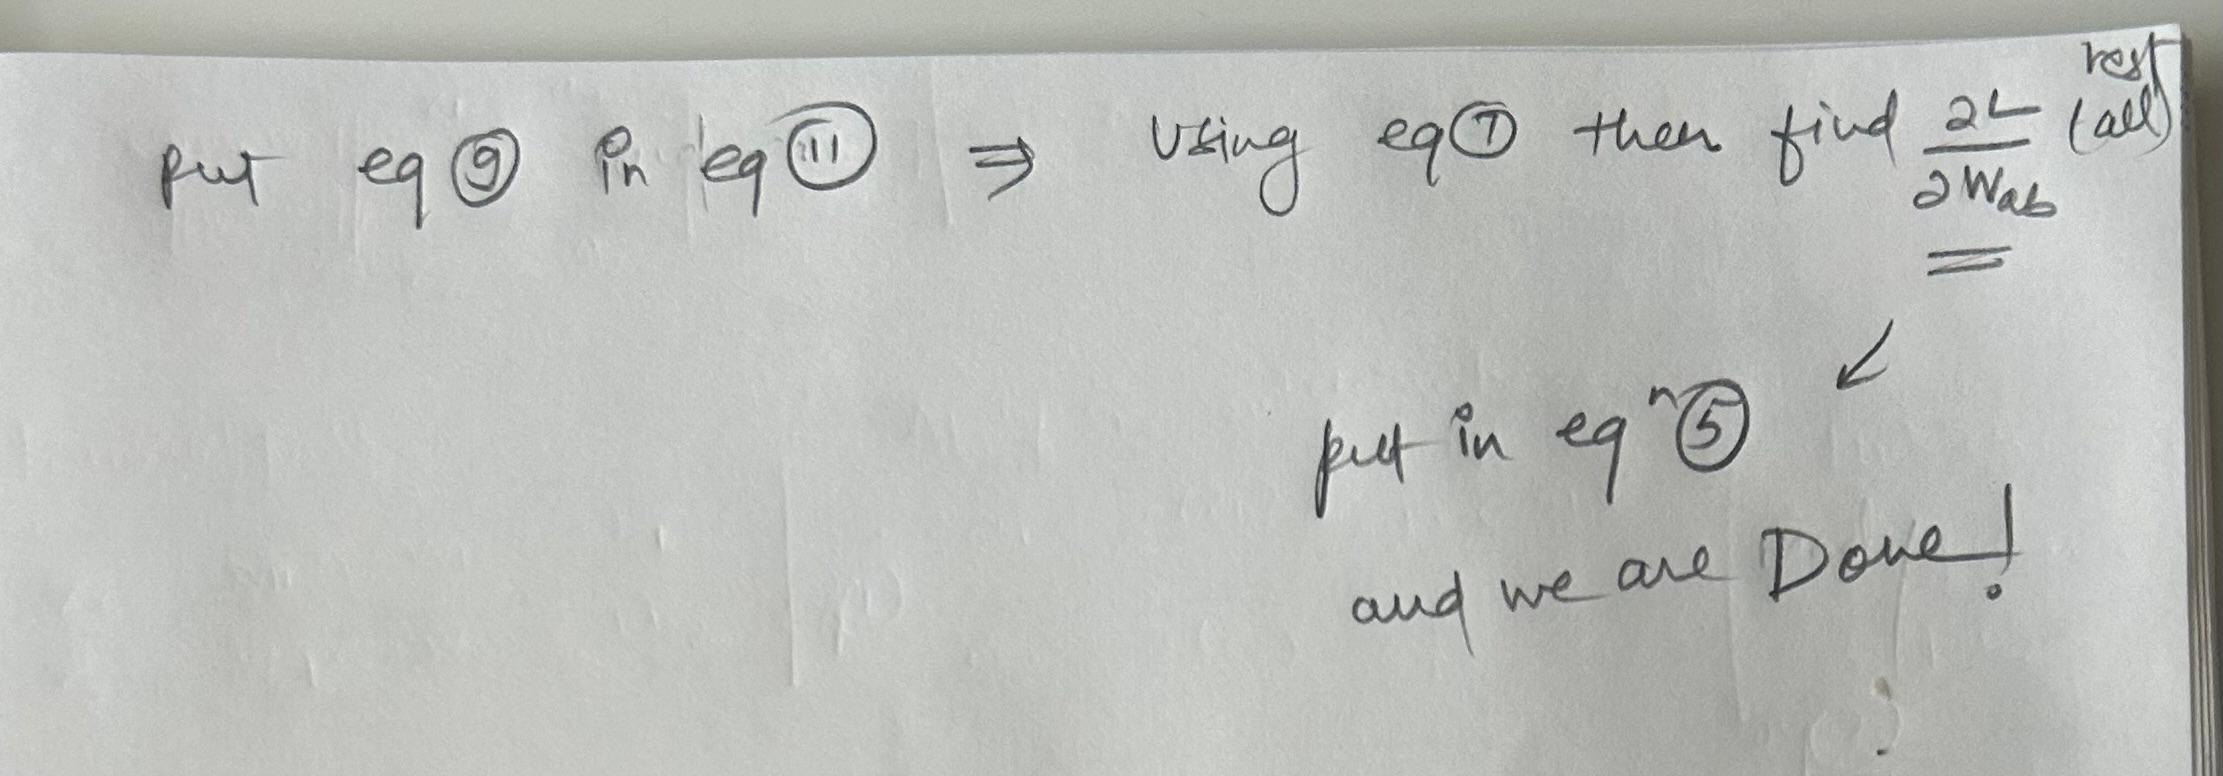 put eq ⑨ in eq ⑪ ⇒ Using eq ⑦ then find ∂L/∂Wab (all rest)
put in eqⁿ ⑤
and we are Done!